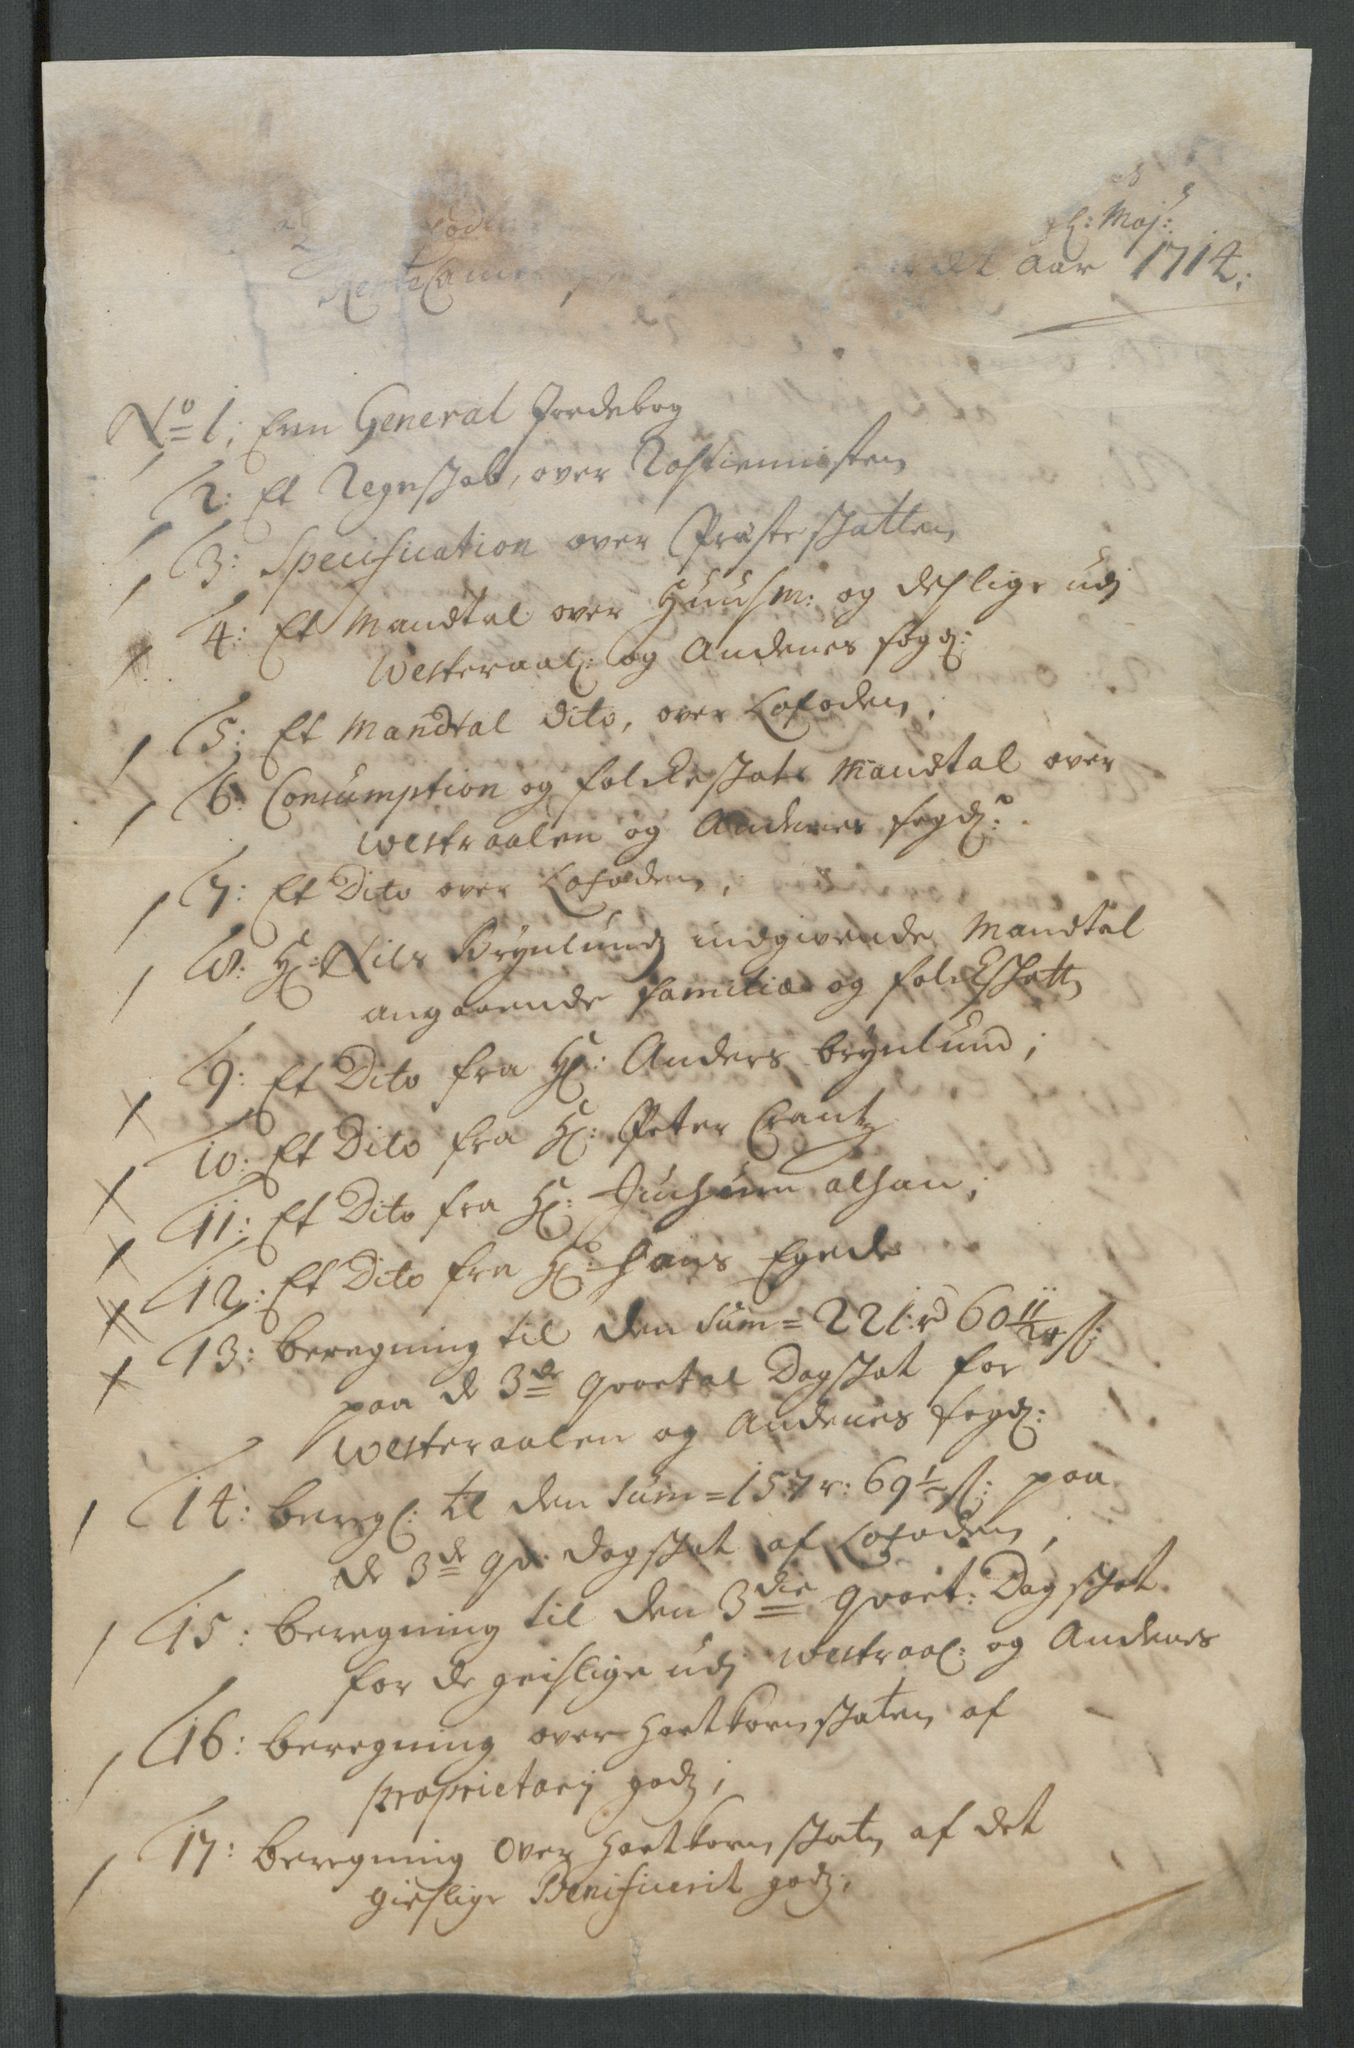 Kl: Maj:
det Aar 1714:
RenteCam
No 1: Een General Jordebog
2: Et Regnskab, over Rostienniesten
3: Specification over Præste skatten
4: Et Mandtal over Huusm: og deslige udj
Westeraal: og Andenes fogd:
5: Et Mandtal dito, over Lofoden,
6: Consumption og folcke skats Mandtal over
Westraalen og Andenes fogd:
7: Et Dito over Lofoden,
8: Hr: Nils Brynlunds indgivende Mandtal
angaaende familiæ og folckskatt
9: Et Dito fra Hr: Anders brynlund;
10: Et Dito fra Hr: Peter Crantz
11: Et Dito fra Hr: Junhuen alhan;
12: Et Dito fra Hr: Hans Egede
13: beregning til den Sum = 221: rd 60 11/12 s:
paa de 3de qvartal Dagskat for
Westeraalen og Andenes fogd:
14: beregl: til den Sum = 157 r: 69 1/2 s: paa
de 3de qv: dagskat af Lofoden;
15: beregning til den 3die qvart: Dagskat
for de geislige udj Westraal: og Andenes
16: beregning over Hartkorn skaten af
proprietarij godz;
17: beregning Over Hartkorn skatn af det
gieslige Benificerit godz;